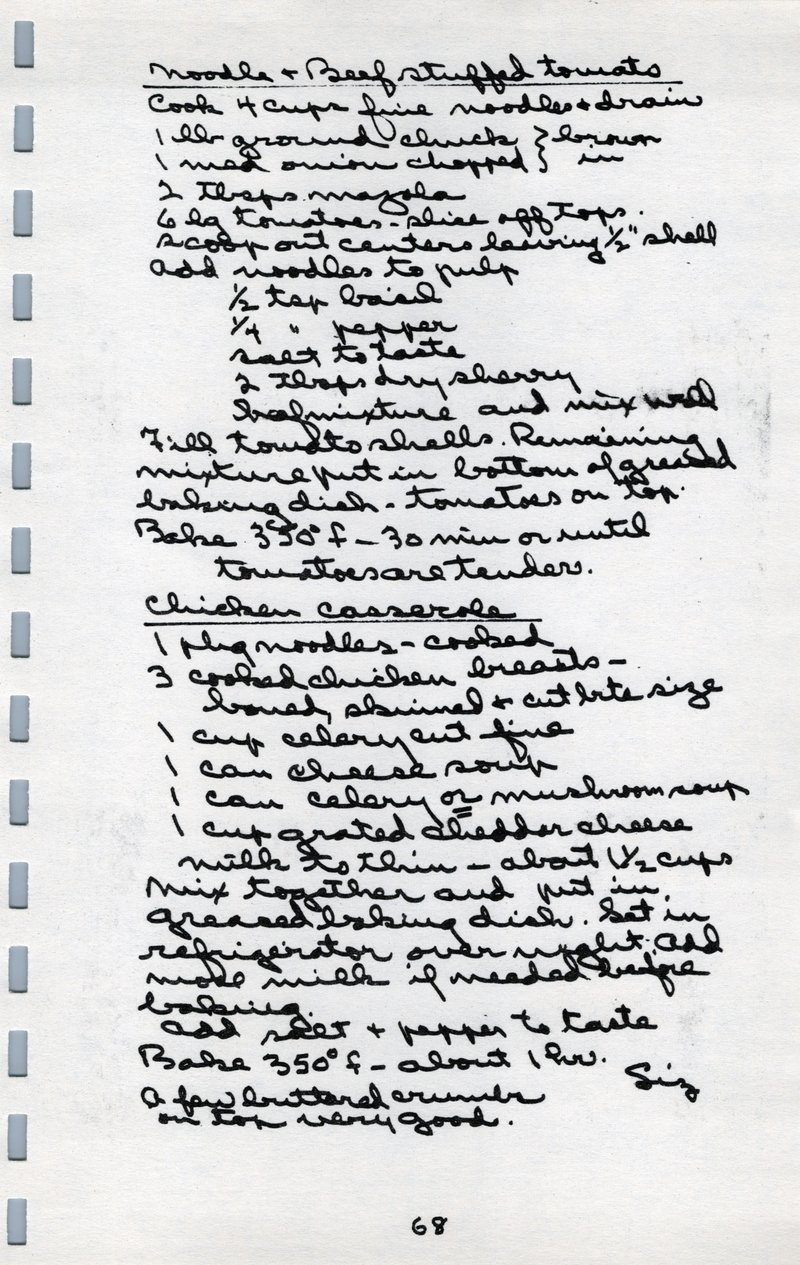 Noodle + Beef stuffed tomato
Cook 4 cups fine noodles + drain
1 lb ground chuck } brown
1 med onion chopped } in
2 tbsps mazola
6 lg tomatoes - slice off tops.
Scoop out centers leaving 1/2" shell
Add noodles to pulp
1/2 tsp basil
1/4 " pepper
salt to taste
2 tbsps dry sherry
beef mixture and mix well
Fill tomato shells. Remaining
mixture put in bottom of greased
baking dish - tomatoes on top.
Bake 350° f - 30 min or until
tomatoes are tender.
Chicken Casserole
1 pkg noodles - cooked
3 cooked chicken breasts -
boned, skinned + cut bite size
1 cup celery cut fine
1 can cheese soup
1 can celery or mushroom soup
1 cup grated cheddar cheese
milk to thin - about 1 1/2 cups
Mix together and put in
greased baking dish. Set in
refrigerator over night. Add
more milk if needed before
baking.
Add salt + pepper to taste
Bake 350° f - about 1 hr.
Siz
A few buttered crumbs
on top very good.
68